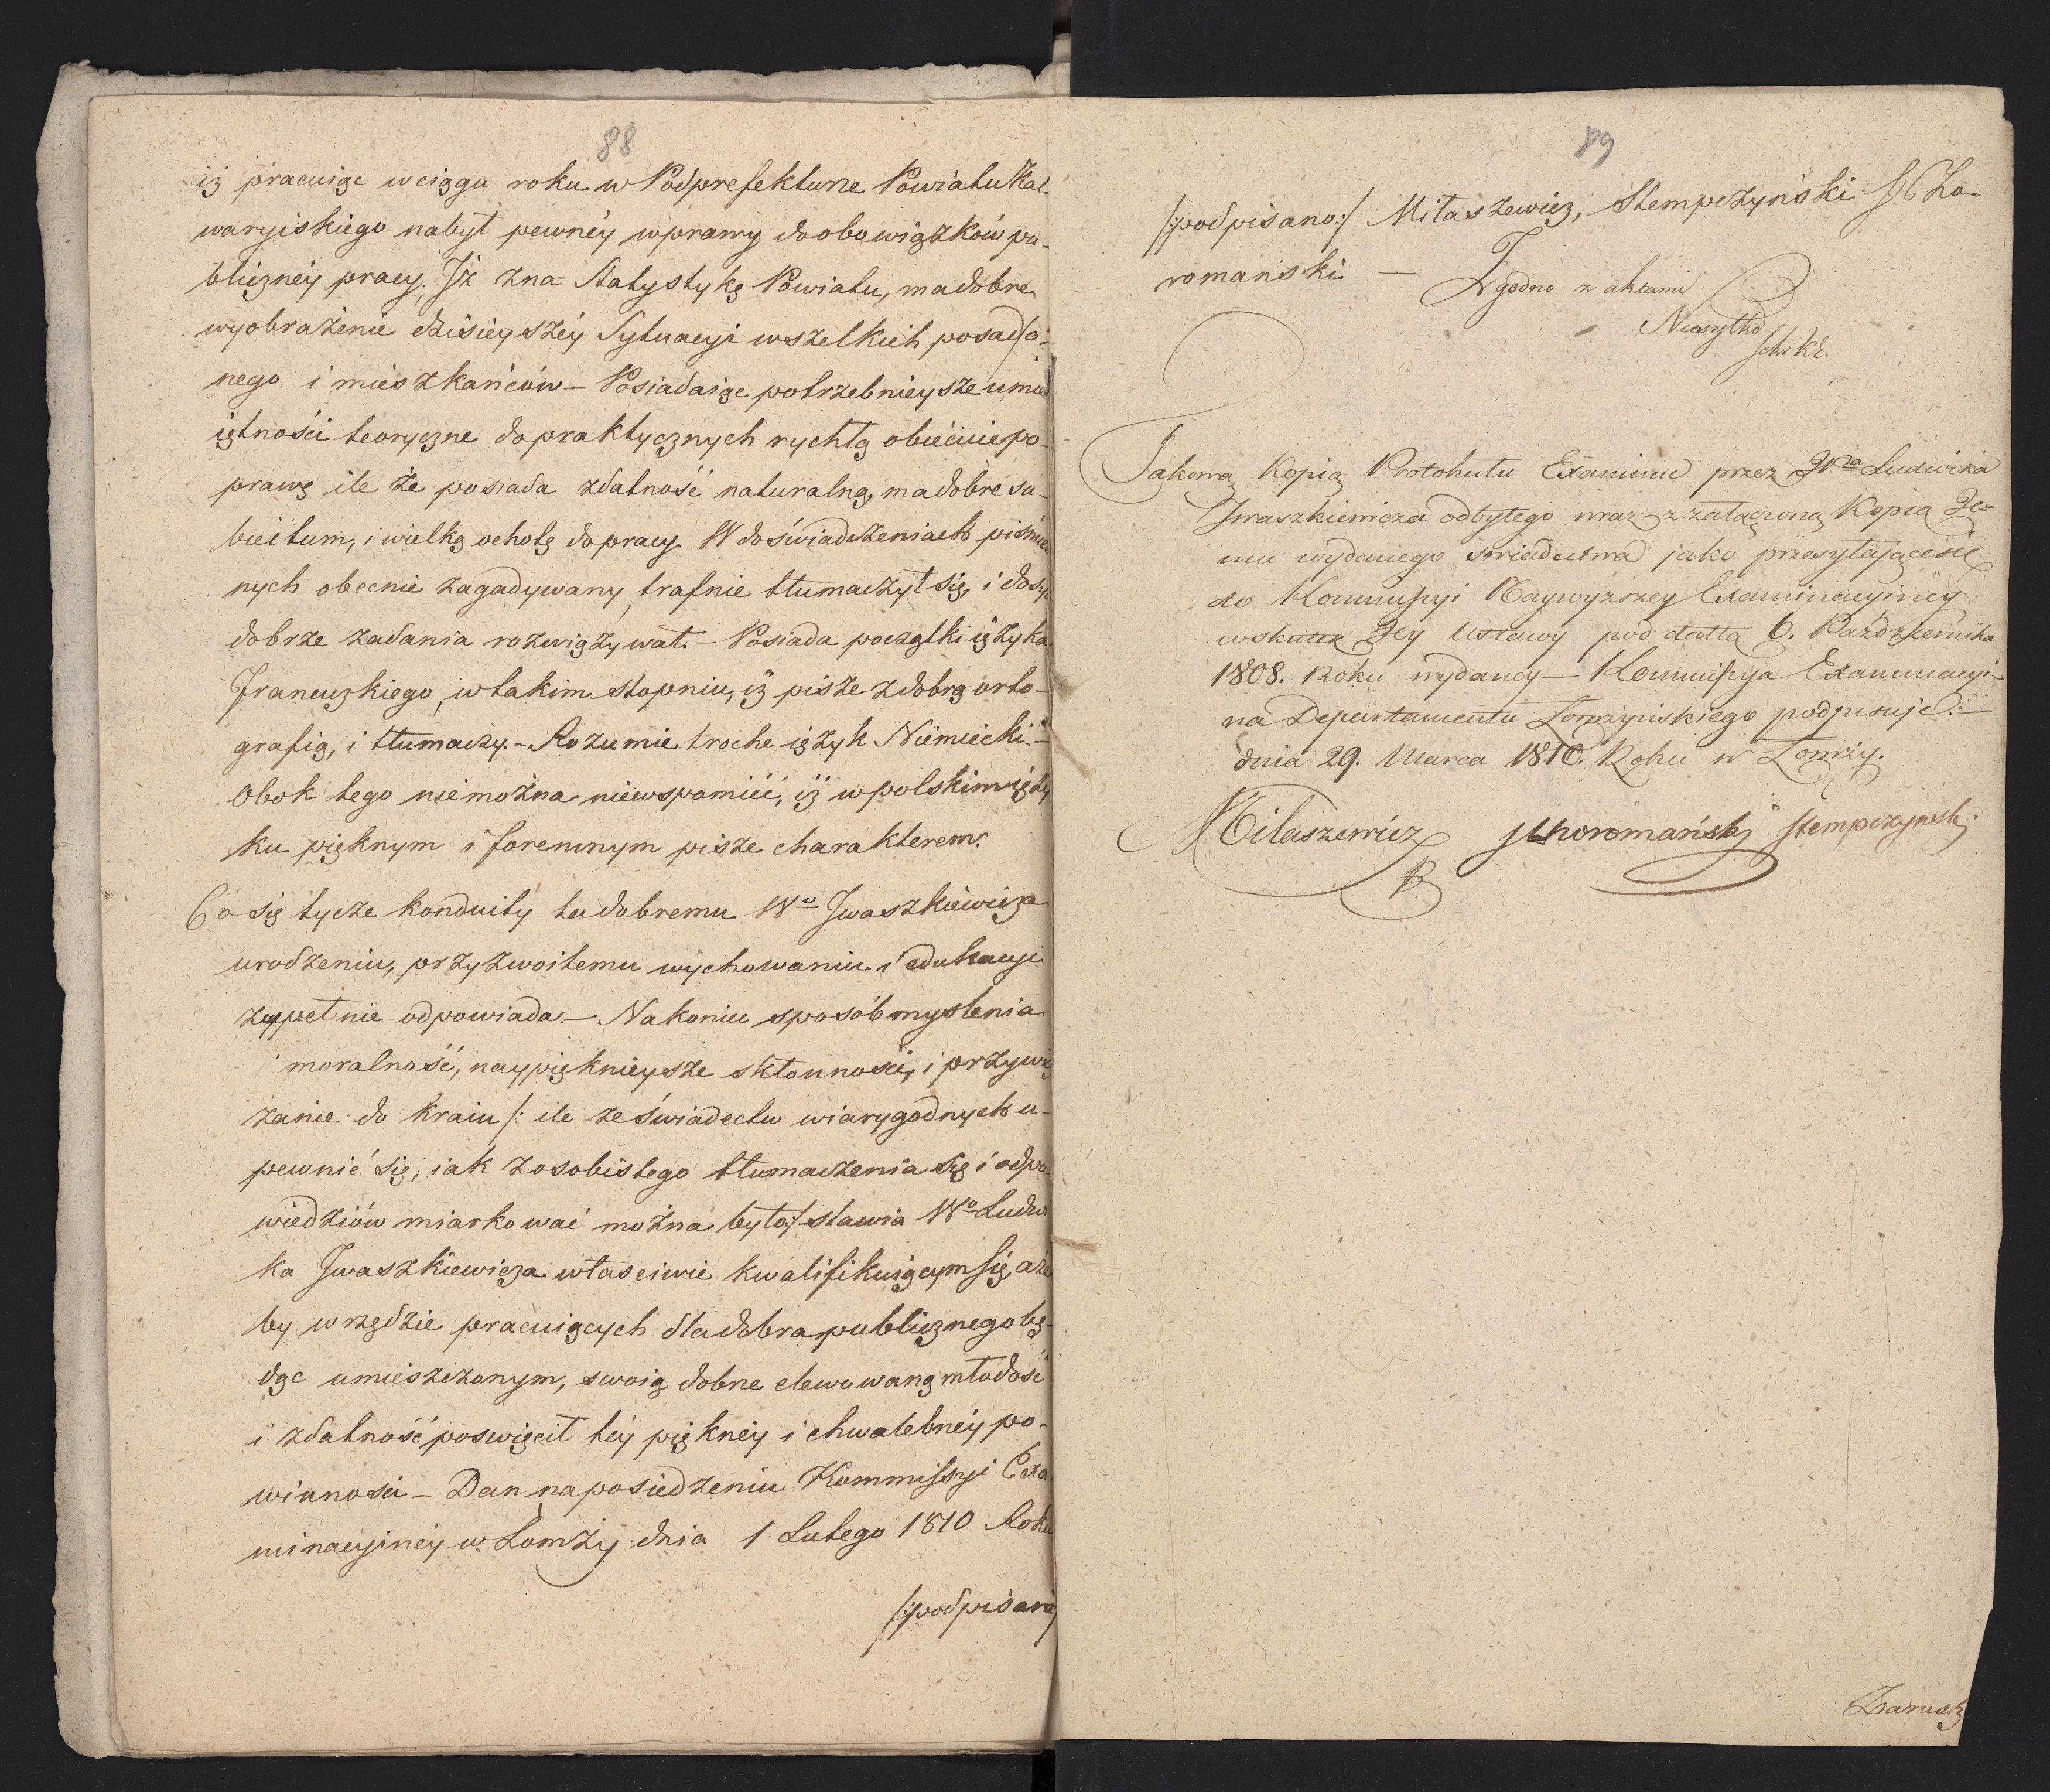 88
iż pracuiąc w ciągu roku w Podprefekturze Powiatu Kal
waryiskiego nabył pewnéy wprawy do obowiązków pu-
blicznéy pracy. Iż zna Statystykę Powiatu, ma dobre
wyobrażenie dzisieyszéy Sytuacyi wszelkich posad
nego i mieszkańców – Posiadaiąc potrzebnieysze umie
iętności teoryczne do praktycznych rychłą obiecuie po-
prawę ile że posiada zdatność naturalną, ma dobre su-
biectum, i wielką ochotę do pracy. W doświadczeniach piśmien
nych obecnie zagadywany, trafnie tłumaczył się, i dosyć
dobrze zadania rozwiązywał. – Posiada początki ięzyka
Francuzkiego, w takim stopniu, iż pisze z dobrą orto-
grafią, i tłumaczy. – Rozumie troche ięzyk Niemiecki. –
Obok tego nie można niewspomieć, iż w polskim ięzy
ku pięknym i foremnym pisze charakterem.
Co się tycze konduity tu dobremu Wo Iwaszkiewicza
urodzeniu, przyzwoitemu wychowaniu i edukacyi
zupełnie odpowiada – Nakoniec sposób myslenia
moralność, naypięknieysze skłonności, i przywią
zanie do kraiu /: ile ze świadectw wiarygodnych u-
pewnić się, iak z osobistego tłumaczenia się i odpo-
wiedziów miarkować można było :/ stawia Wo Ludwi
ka Iwaszkiewicza własciwie kwalifikuiącym się, aże
by w rzędzie pracuiących dla dobra publicznego bę-
dąc umieszczonym, swoią dobrze elewowaną młodość
i zdatność poswięcił téy piękney i chwalebnéy po-
winnosci – Dan na posiedzeniu Kommissyi Exa
minacyinéy w Łomży dnia 1 Lutego 1810 Roku
/:podpisano
89
/:podpisano:/ Miłaszewicz, Stempczyński Cho-
romański –
Zgodno z aktami
Sekrtz.
Jakową Kopią Protokułu Examinu przez Ludwika
Iwaszkiewicza odbytego wraz z załączoną Kopią Je-
mu wydanego świadectwa jako przesyłającesię
do Kommissyi Naywyższey Examinacyiney
wskutek Jey Ustawy pod datta 6. Października
1808. Roku wydaney – Kommissya Examinacyi-
na Departamentu Łomżyńskiego podpisuje: –
dnia 29. Marca 1810. Roku w Łomży.
Miłaszewicz Choromański Stempczyński
P.